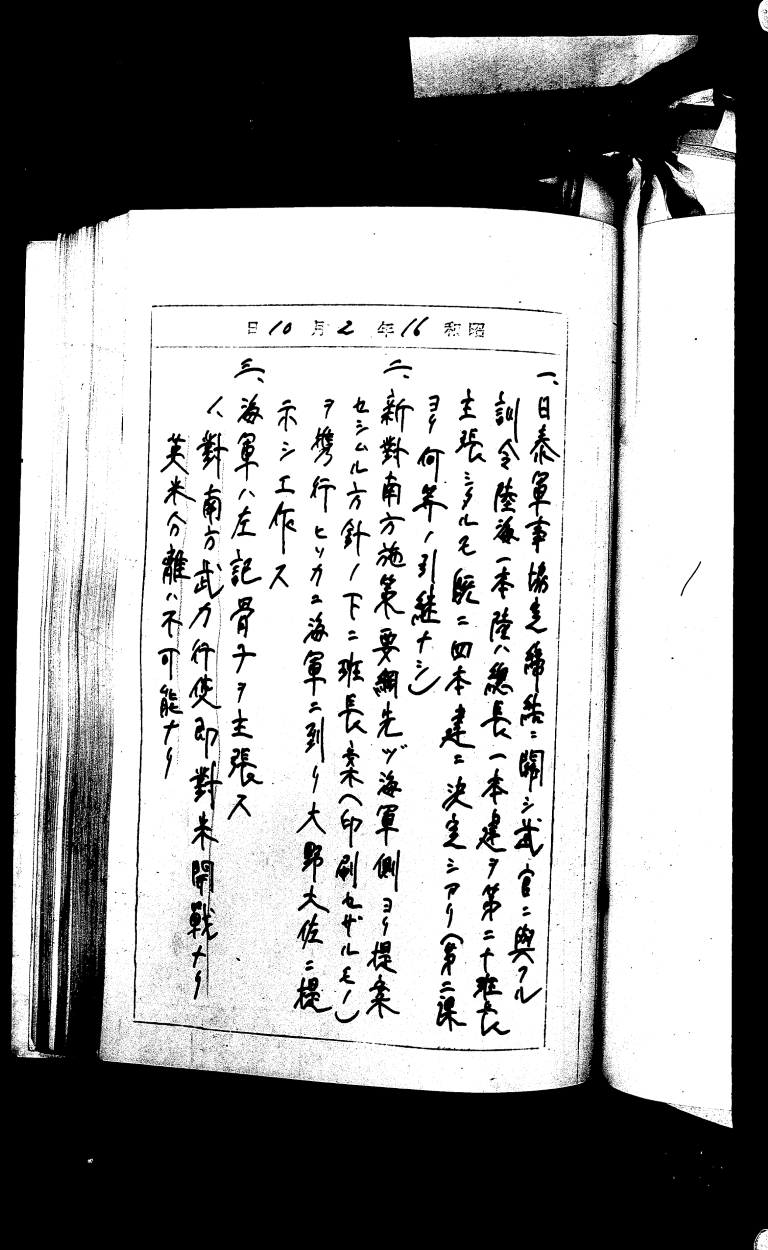 昭和16年2月10日
一、日泰軍事協定締結ニ関シ武官ニ與フル
訓令陸海一本陸ハ總長一本建ヲ第二十班長
主張シタルモ既ニ四本建ニ決定シアリ(第二課
ヨリ何等ノ引継ナシ)
二、新對南方施策要綱先ヅ海軍側ヨリ提案
セシムル方針ノ下ニ班長案(印刷セザルモノ)
ヲ携行ヒソカニ海軍ニ到リ大野大佐ニ提
示シ工作ス
三、海軍ハ左記骨子ヲ主張ス
1、對南方武力行使即對米開戰ナリ
英米分離ハ不可能ナリ